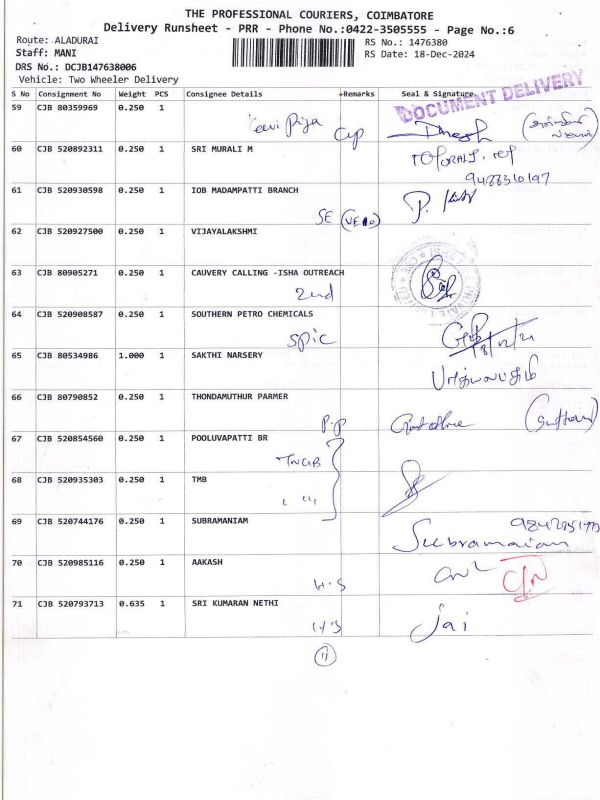 THE PROFESSIONAL COURIERS, COIMBATORE
Delivery Runsheet - PRR - Phone No.:0422-3505555 - Page No.:6
Route: ALADURAI RS No.: 1476380
Staff: MANI RS Date: 18-Dec-2024
DRS No.: DCJB147638006
Vehicle: Two Wheeler Delivery
S No Consignment No Weight PCS Consignee Details Remarks Seal & Signature
DOCUMENT DELIVERY
59 CJB 80359969 0.250 1
60 CJB 520892311 0.250 1 SRI MURALI M
9488310197
61 CJB 520930598 0.250 1 IOB MADAMPATTI BRANCH
SE
62 CJB 520927500 0.250 1 VIJAYALAKSHMI
63 CJB 80905271 0.250 1 CAUVERY CALLING -ISHA OUTREACH
2nd
64 CJB 520908587 0.250 1 SOUTHERN PETRO CHEMICALS
SPIC
65 CJB 80534986 1.000 1 SAKTHI NARSERY
66 CJB 80790852 0.250 1 THONDAMUTHUR PARMER
P.P
67 CJB 520854560 0.250 1 POOLUVAPATTI BR
68 CJB 520935303 0.250 1 TMB
69 CJB 520744176 0.250 1 SUBRAMANIAM
Subramaniam
70 CJB 520985116 0.250 1 AAKASH
H.S
71 CJB 520793713 0.635 1 SRI KUMARAN NETHI
H'S Jai
11